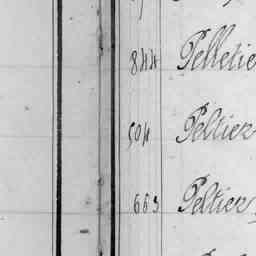 844 Pelletie
504 Peltier
663 Peltier